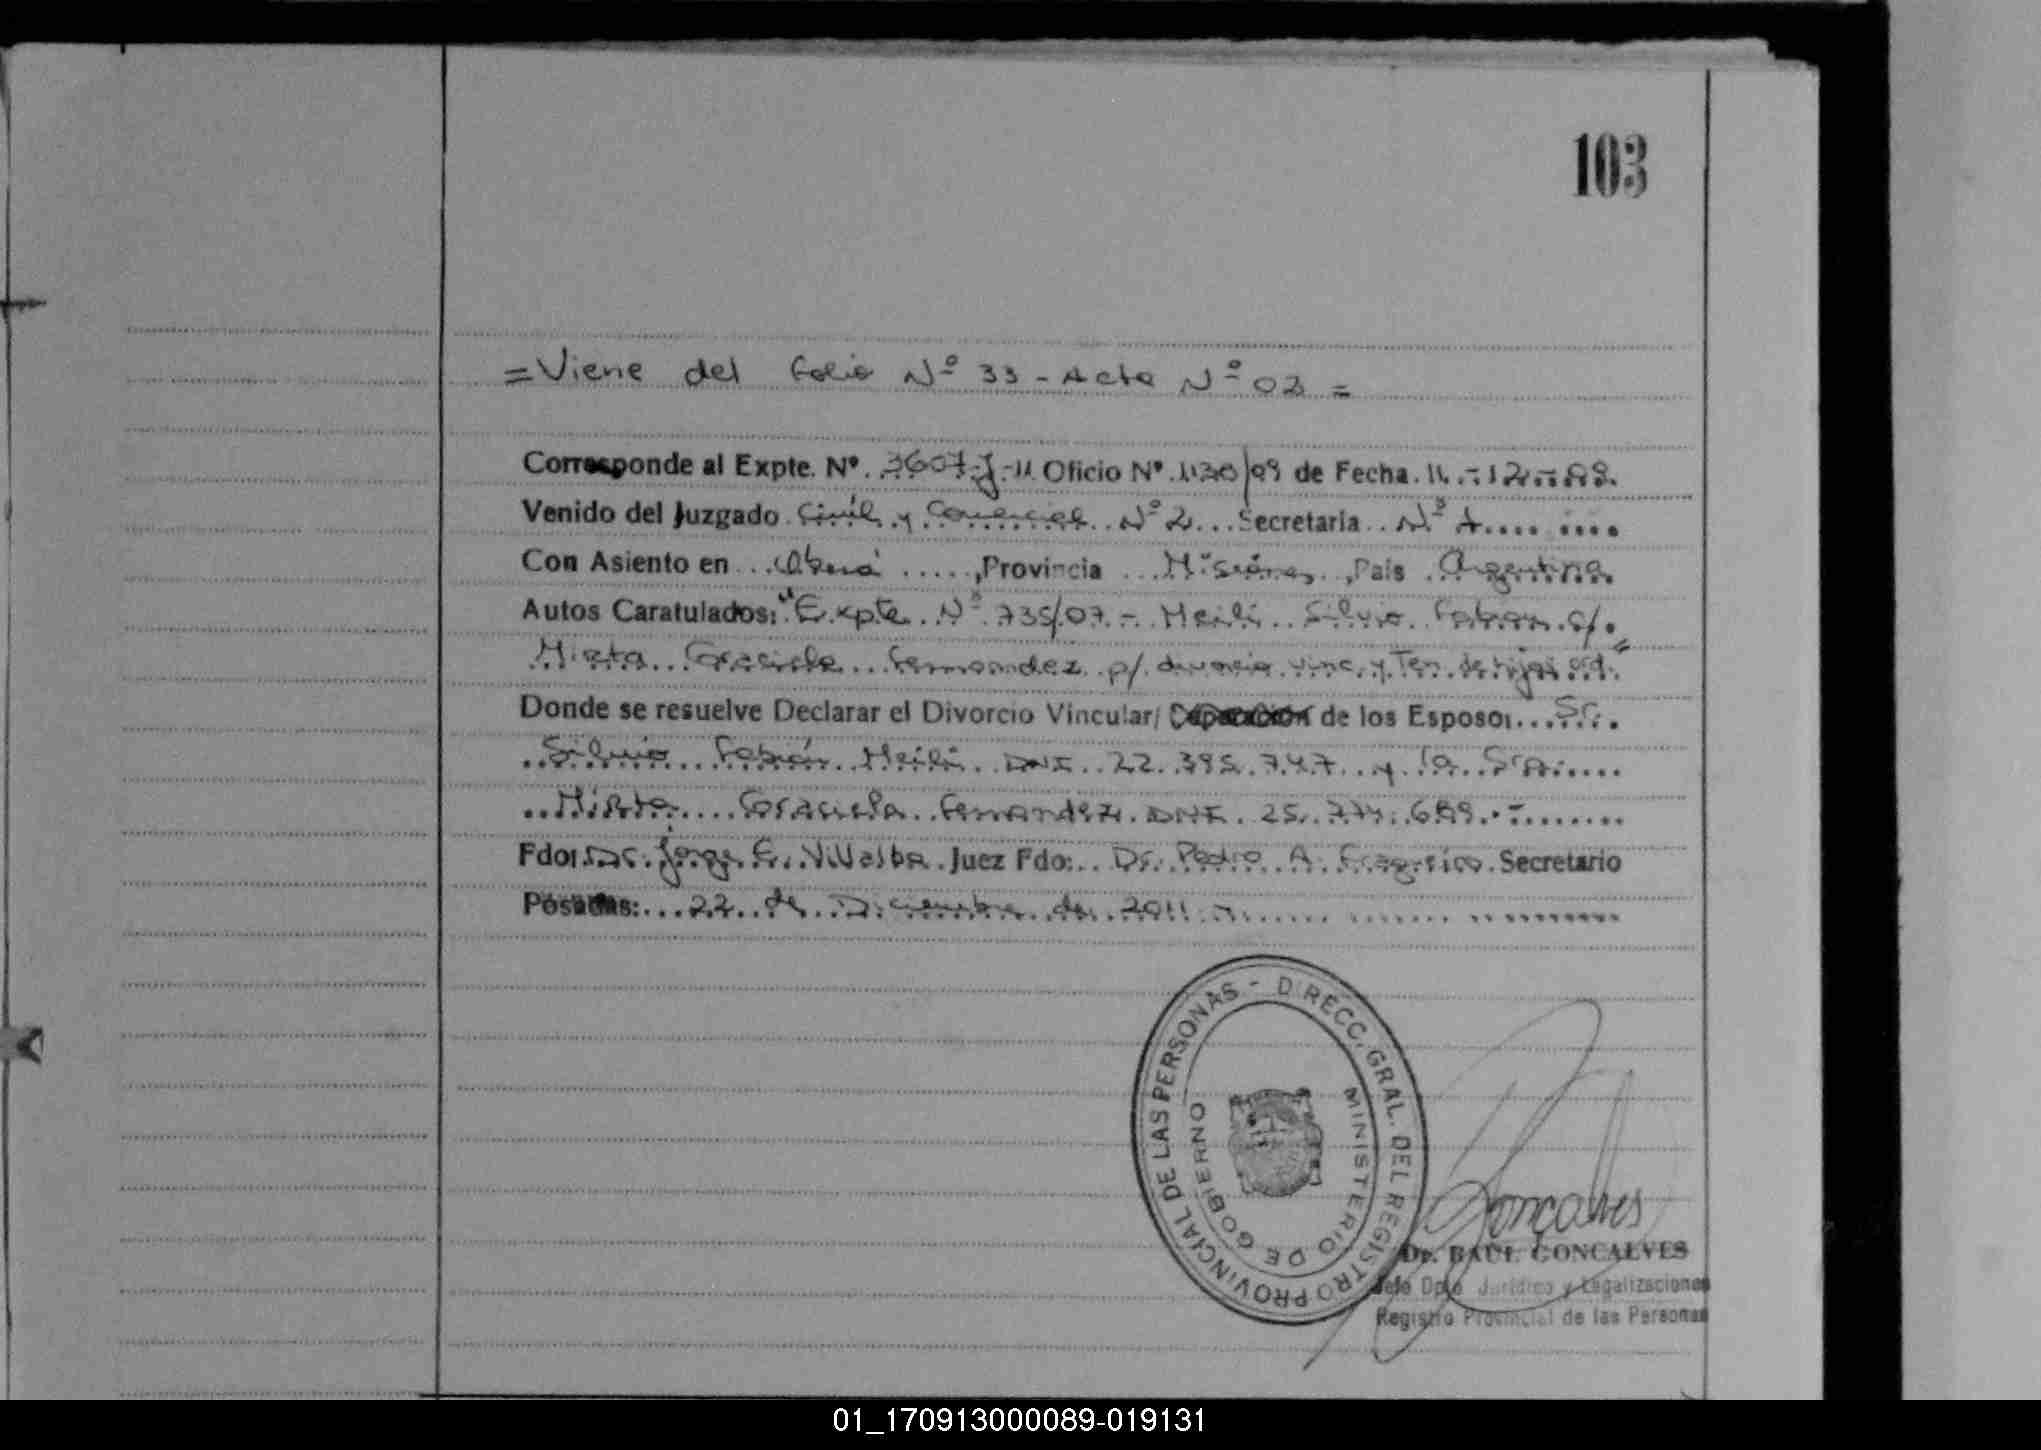 103
= Viene del folio Nº 33 - Acta Nº 02 =
Corresponde al Expte. Nº. 3607-J-11 Oficio Nº. 1130/09 de Fecha. 11.-12.-09.
Venido del Juzgado Civil y Comercial Nº 2... Secretaria.. Nº 1........
Con Asiento en ...Oberá ....., Provincia ...Misiones.., Pais .Argentina.
Autos Caratulados: "Expte. Nº 735/07.- Meili.. Silvio Fabián c/.
Mirta.. Graciela... Fernandez p/. divorcio vinc. y Ten. de hijos ord."
Donde se resuelve Declarar el Divorcio Vincular/ de los Esposo: ....Sr..
..Silvio.. Fabián.. Meili.. DNI.. 22.395.747.. y la.. Sra.....
..Mirta.... Graciela.. Fernandez. DNI. 25.774.689.-........
Fdo: Dr. Jorge E. Villalba. Juez Fdo:.. Dr. Pedro A. Secretario
Posadas:...22.. de.. Diciembre de. 2011.-
DIRECC. GRAL. DEL REGISTRO PROVINCIAL DE LAS PERSONAS -
MINISTERIO DE GOBIERNO
Goncalves
Dr. RAUL GONCALVES
Jefe Dpto Jurídico y Legalizaciones
Registro Provincial de las Personas
01_170913000089-019131